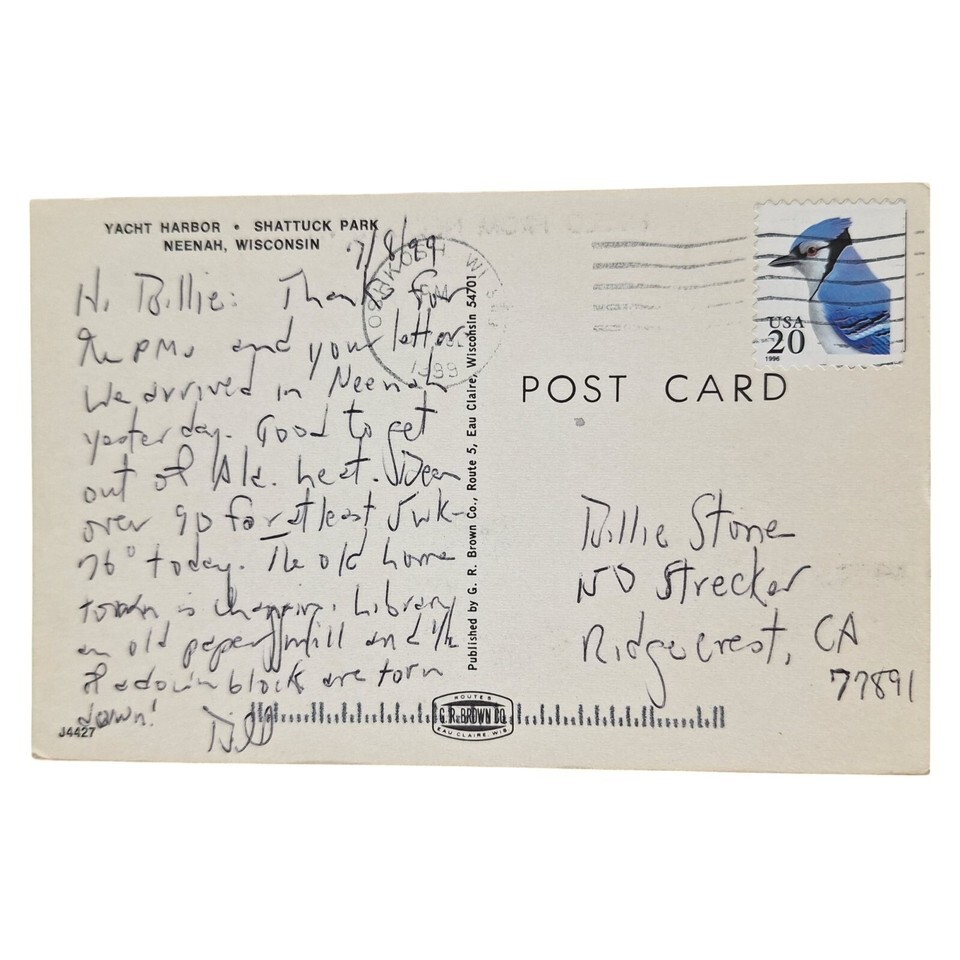 YACHT HARBOR • SHATTUCK PARK
NEENAH, WISCONSIN
7/8/99
Hi Billie: Thanks for
the PMs and your letter.
We arrived in Neenah
yesterday. Good to get
out of Ala. heat. Been
over 90 for at least 5 wk-
76° today. The old home
town is changing. Library,
an old paper mill and 1/2
of a down block are torn
down! Bill
J4427
Published by G. R. Brown Co., Route 5, Eau Claire, Wisconsin 54701
OSHKOSH WI
PM
1999
USA
20
1996
POST CARD
Billie Stone
ND Strecker
Ridgecrest, CA
77891
ROUTE 5
G. R. BROWN CO.
EAU CLAIRE, WIS